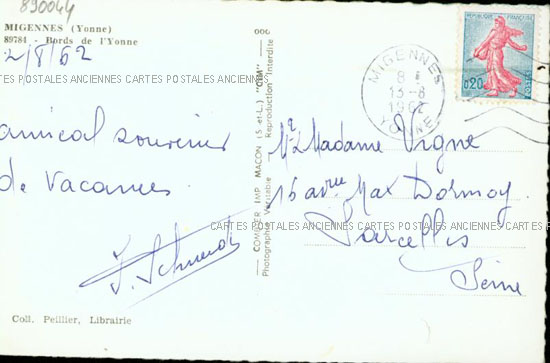 890044
MIGENNES (Yonne)
89784 - Bords de l'Yonne
2/8/62
amical souvenir
de Vacances
J. Schmidt
Coll. Peillier, Librairie
COMBIER IMP. MACON (S.-et-L.) "CIM"
Photographie Véritable Reproduction Interdite
RÉPUBLIQUE FRANÇAISE
0,20
POSTES
MIGENNES
8 H
13-8
1962
YONNE
Mr & Madame Vigne
15 avnue Max Dormoy
Sarcelles
Seine
CARTES POSTALES ANCIENNES CARTES POSTALES ANCIENNES
CARTES POSTALES ANCIENNES CARTES POSTALES ANCIENNES